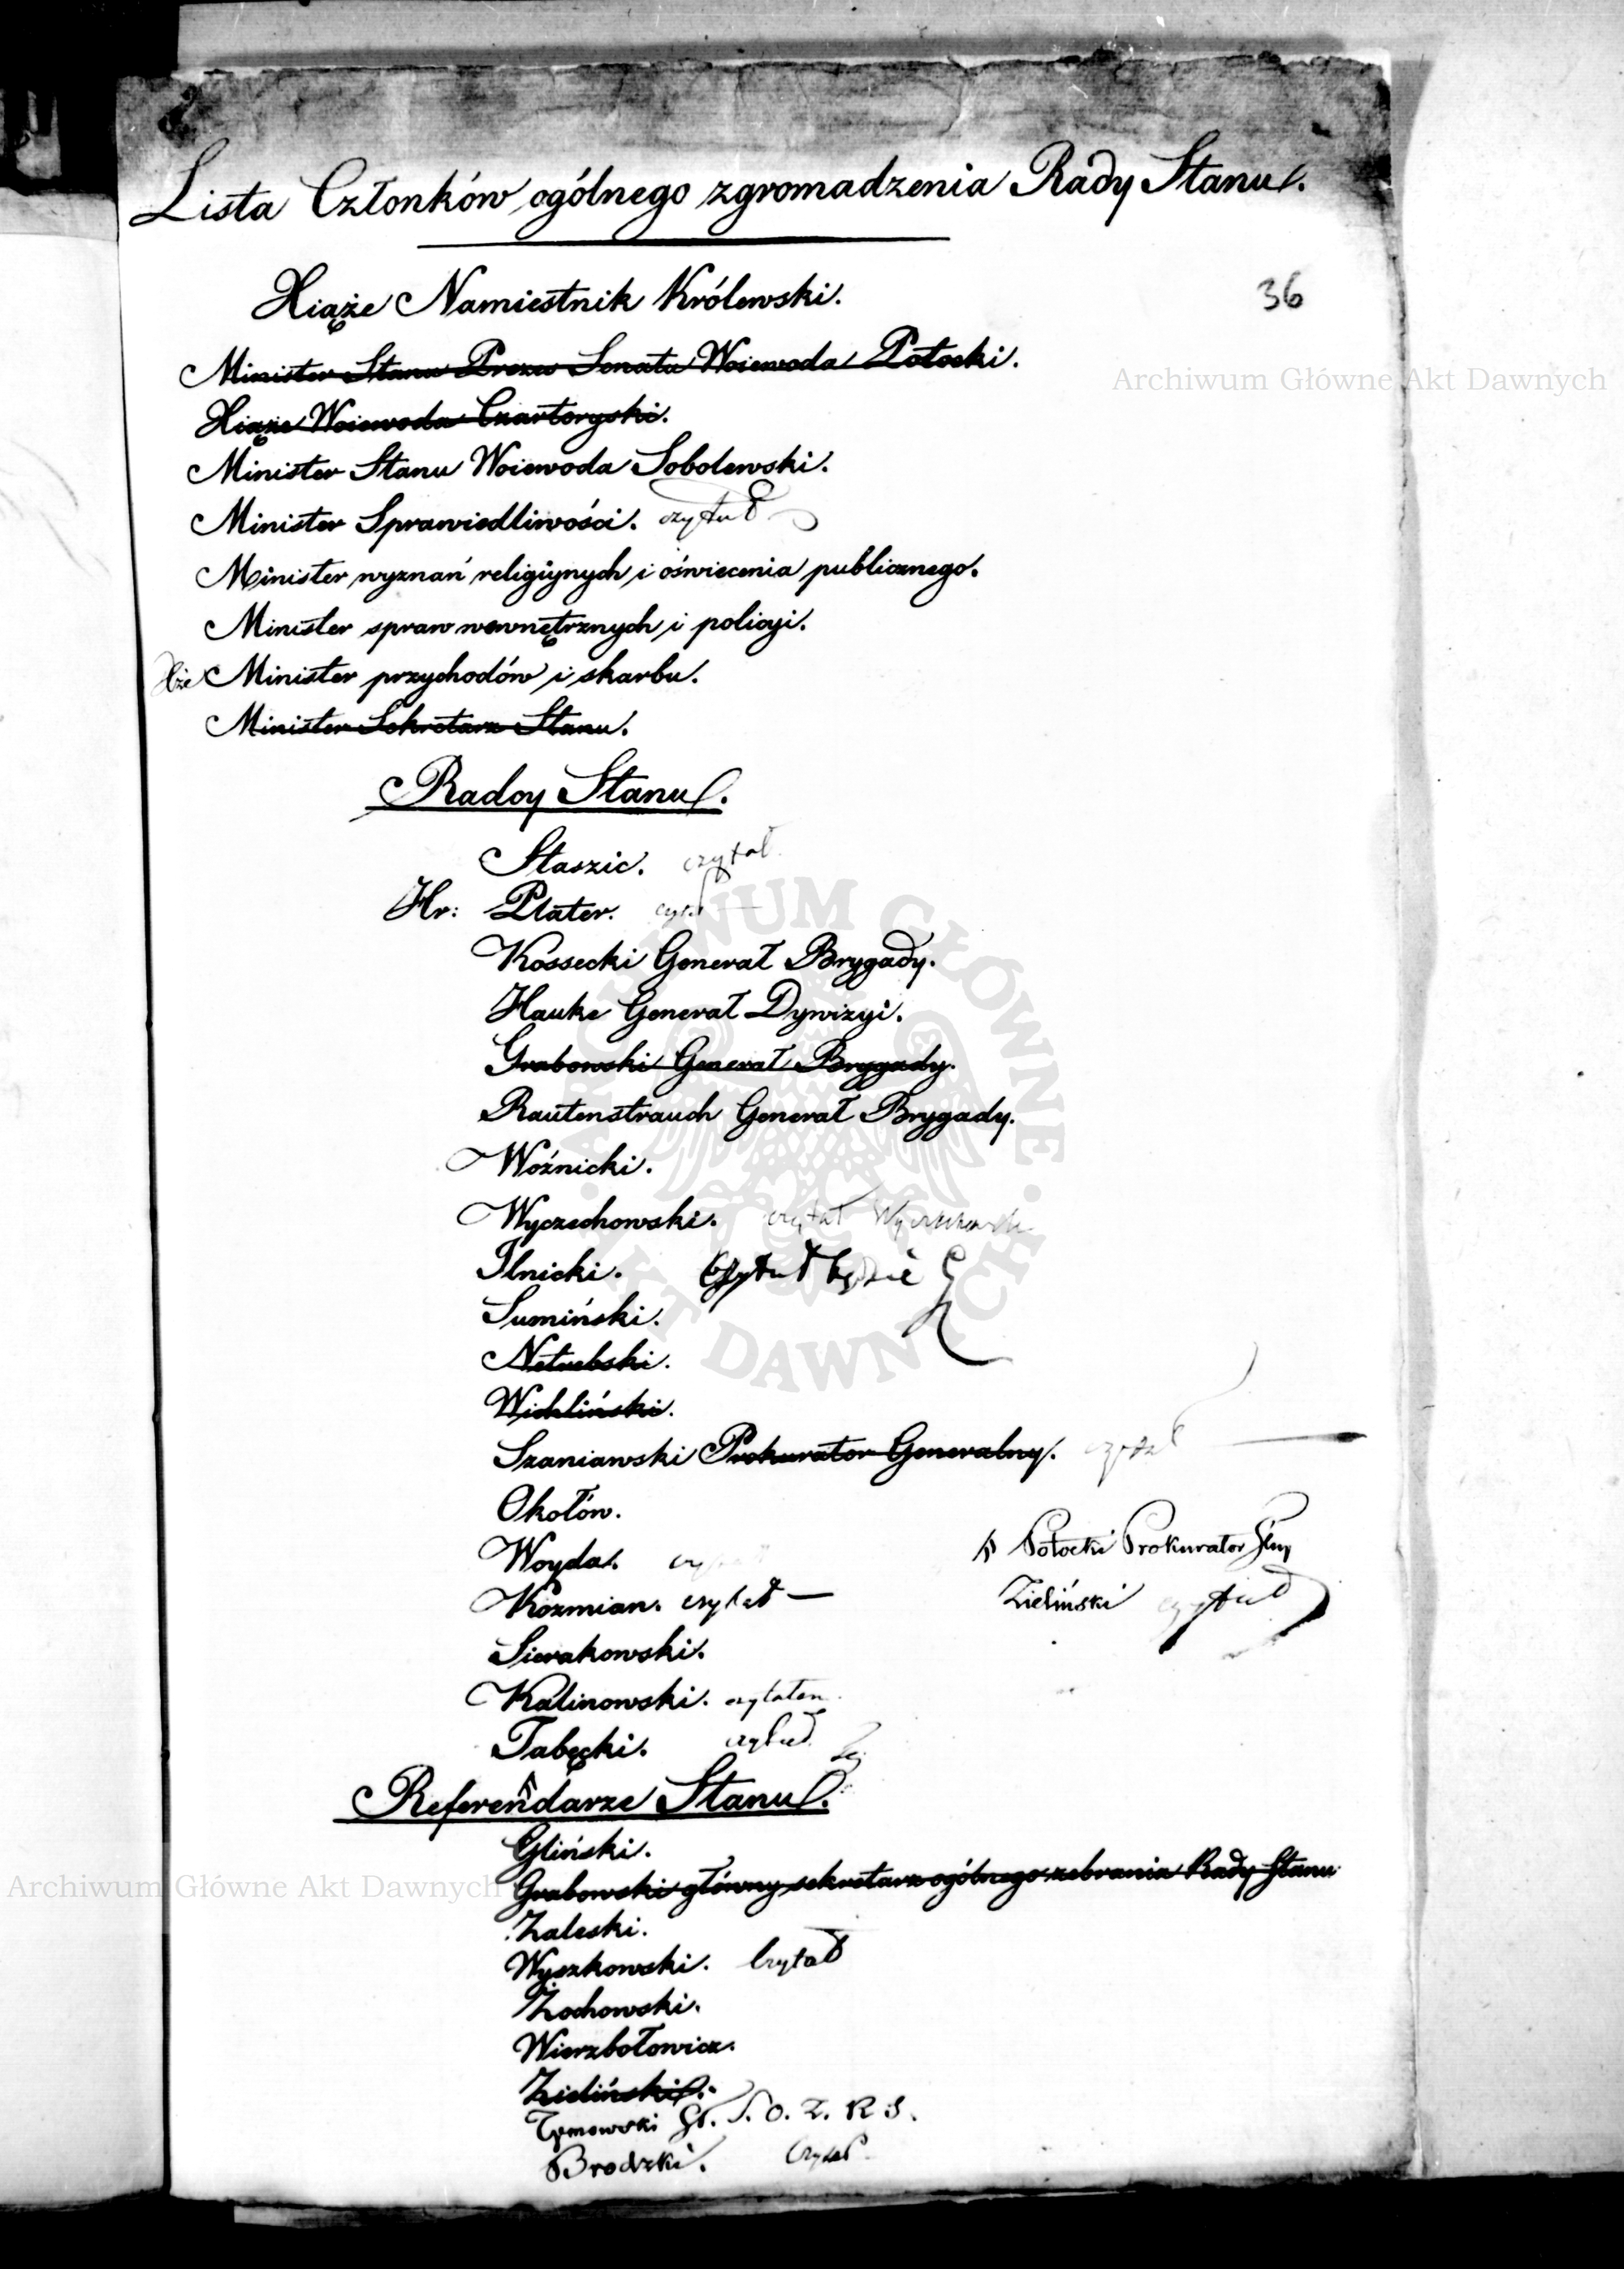 Lista Członków ogólnego zgromadzenia Rady Stanu.
36
Xiąże Namiestnik Królewski.
Archiwum Główne Akt Dawnych
Minister Stanu Prezes Senatu Woiewoda Potocki.
Xiąże Woiewoda Czartoryski.
Minister Stanu Woiewoda Sobolewski.
Minister Sprawiedliwości. czytał
Minister wyznań religijnych i oświecenia publicznego.
Minister spraw wewnętrznych i policyi.
Xże Minister przychodów i skarbu.
Minister Sekretarz Stanu.
Radcy Stanu.
Staszic. czytał
Hr: Plater. czytał
Kossecki Generał Brygady.
Hauke Generał Dywizyi.
Grabowski Generał Brygady.
Rautenstrauch Generał Brygady.
Woźnicki.
Wyczechowski. czytał Wyczechowski
Ilnicki. Czytał
Sumiński.
Netrebski.
Wichliński.
Szaniawski Prokurator Generalny. czytał
Okołów.
Woyda.
Potocki Prokurator
Koźmian. czytał
Zieliński czytał
Sierakowski.
Kalinowski. czytałem
Tabęcki. czytał
Referendarze Stanu.
Gliński.
Grabowski główny sekretarz ogólnego zebrania Rady Stanu
Archiwum Główne Akt Dawnych
Zaleski.
Wyszkowski. Czytał
Żochowski.
Wierzbołowicz.
Zieliński.
Tymowski Gł. S. O. Z. R S.
Brodzki. Czytał
ARCHIWUM GŁÓWNE · AKT DAWNYCH ·